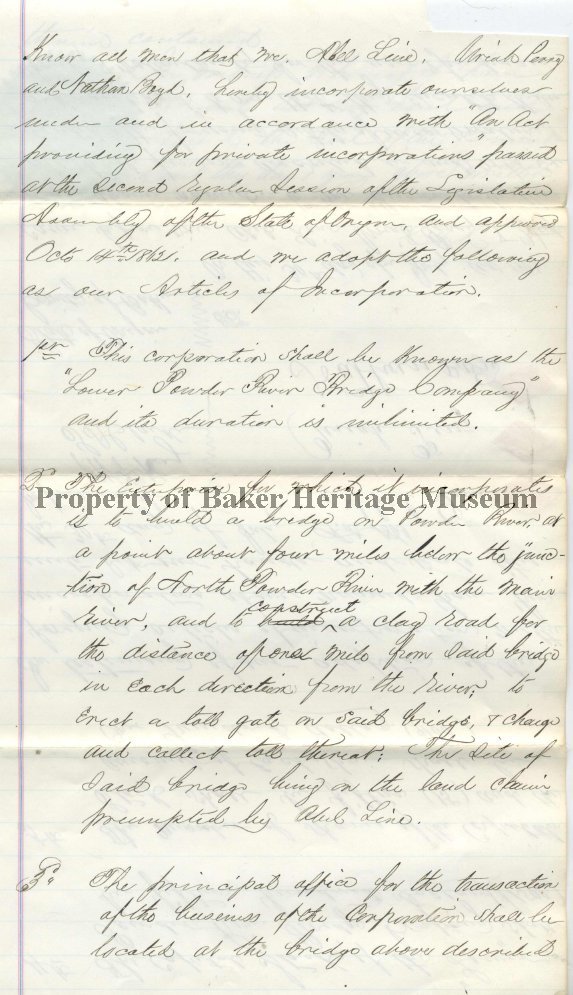 Know all men that we, Abel Line, Uriah Perry
and Nathan Boyd, hereby incorporate ourselves
under and in accordance with "An Act
providing for private incorporations" passed
at the second regular Session of the Legislative
Assembly of the State of Oregon, and approved
Octo 14th 1862. and we adopt the following
as our Articles of Incorporation.
This corporation shall be Known as the
"Lower Powder River Bridge Company"
and its duration is unlimited.
2d The Enterprise for which it incorporates
Property of Baker Heritage Museum
is to build a bridge on Powder River, at
a point about four miles below the junc-
tion of North Powder River with the main
river, and to build construct a clay road for
the distance of one mile from said bridge
in each direction from the river; to
Erect a toll gate on said bridge, & charge
and collect toll thereat; The site of
said bridge being on the land claim
preempted by Abel Line.
3d. The principal office for the transaction
of the business of the Corporation shall be
located at the bridge above described